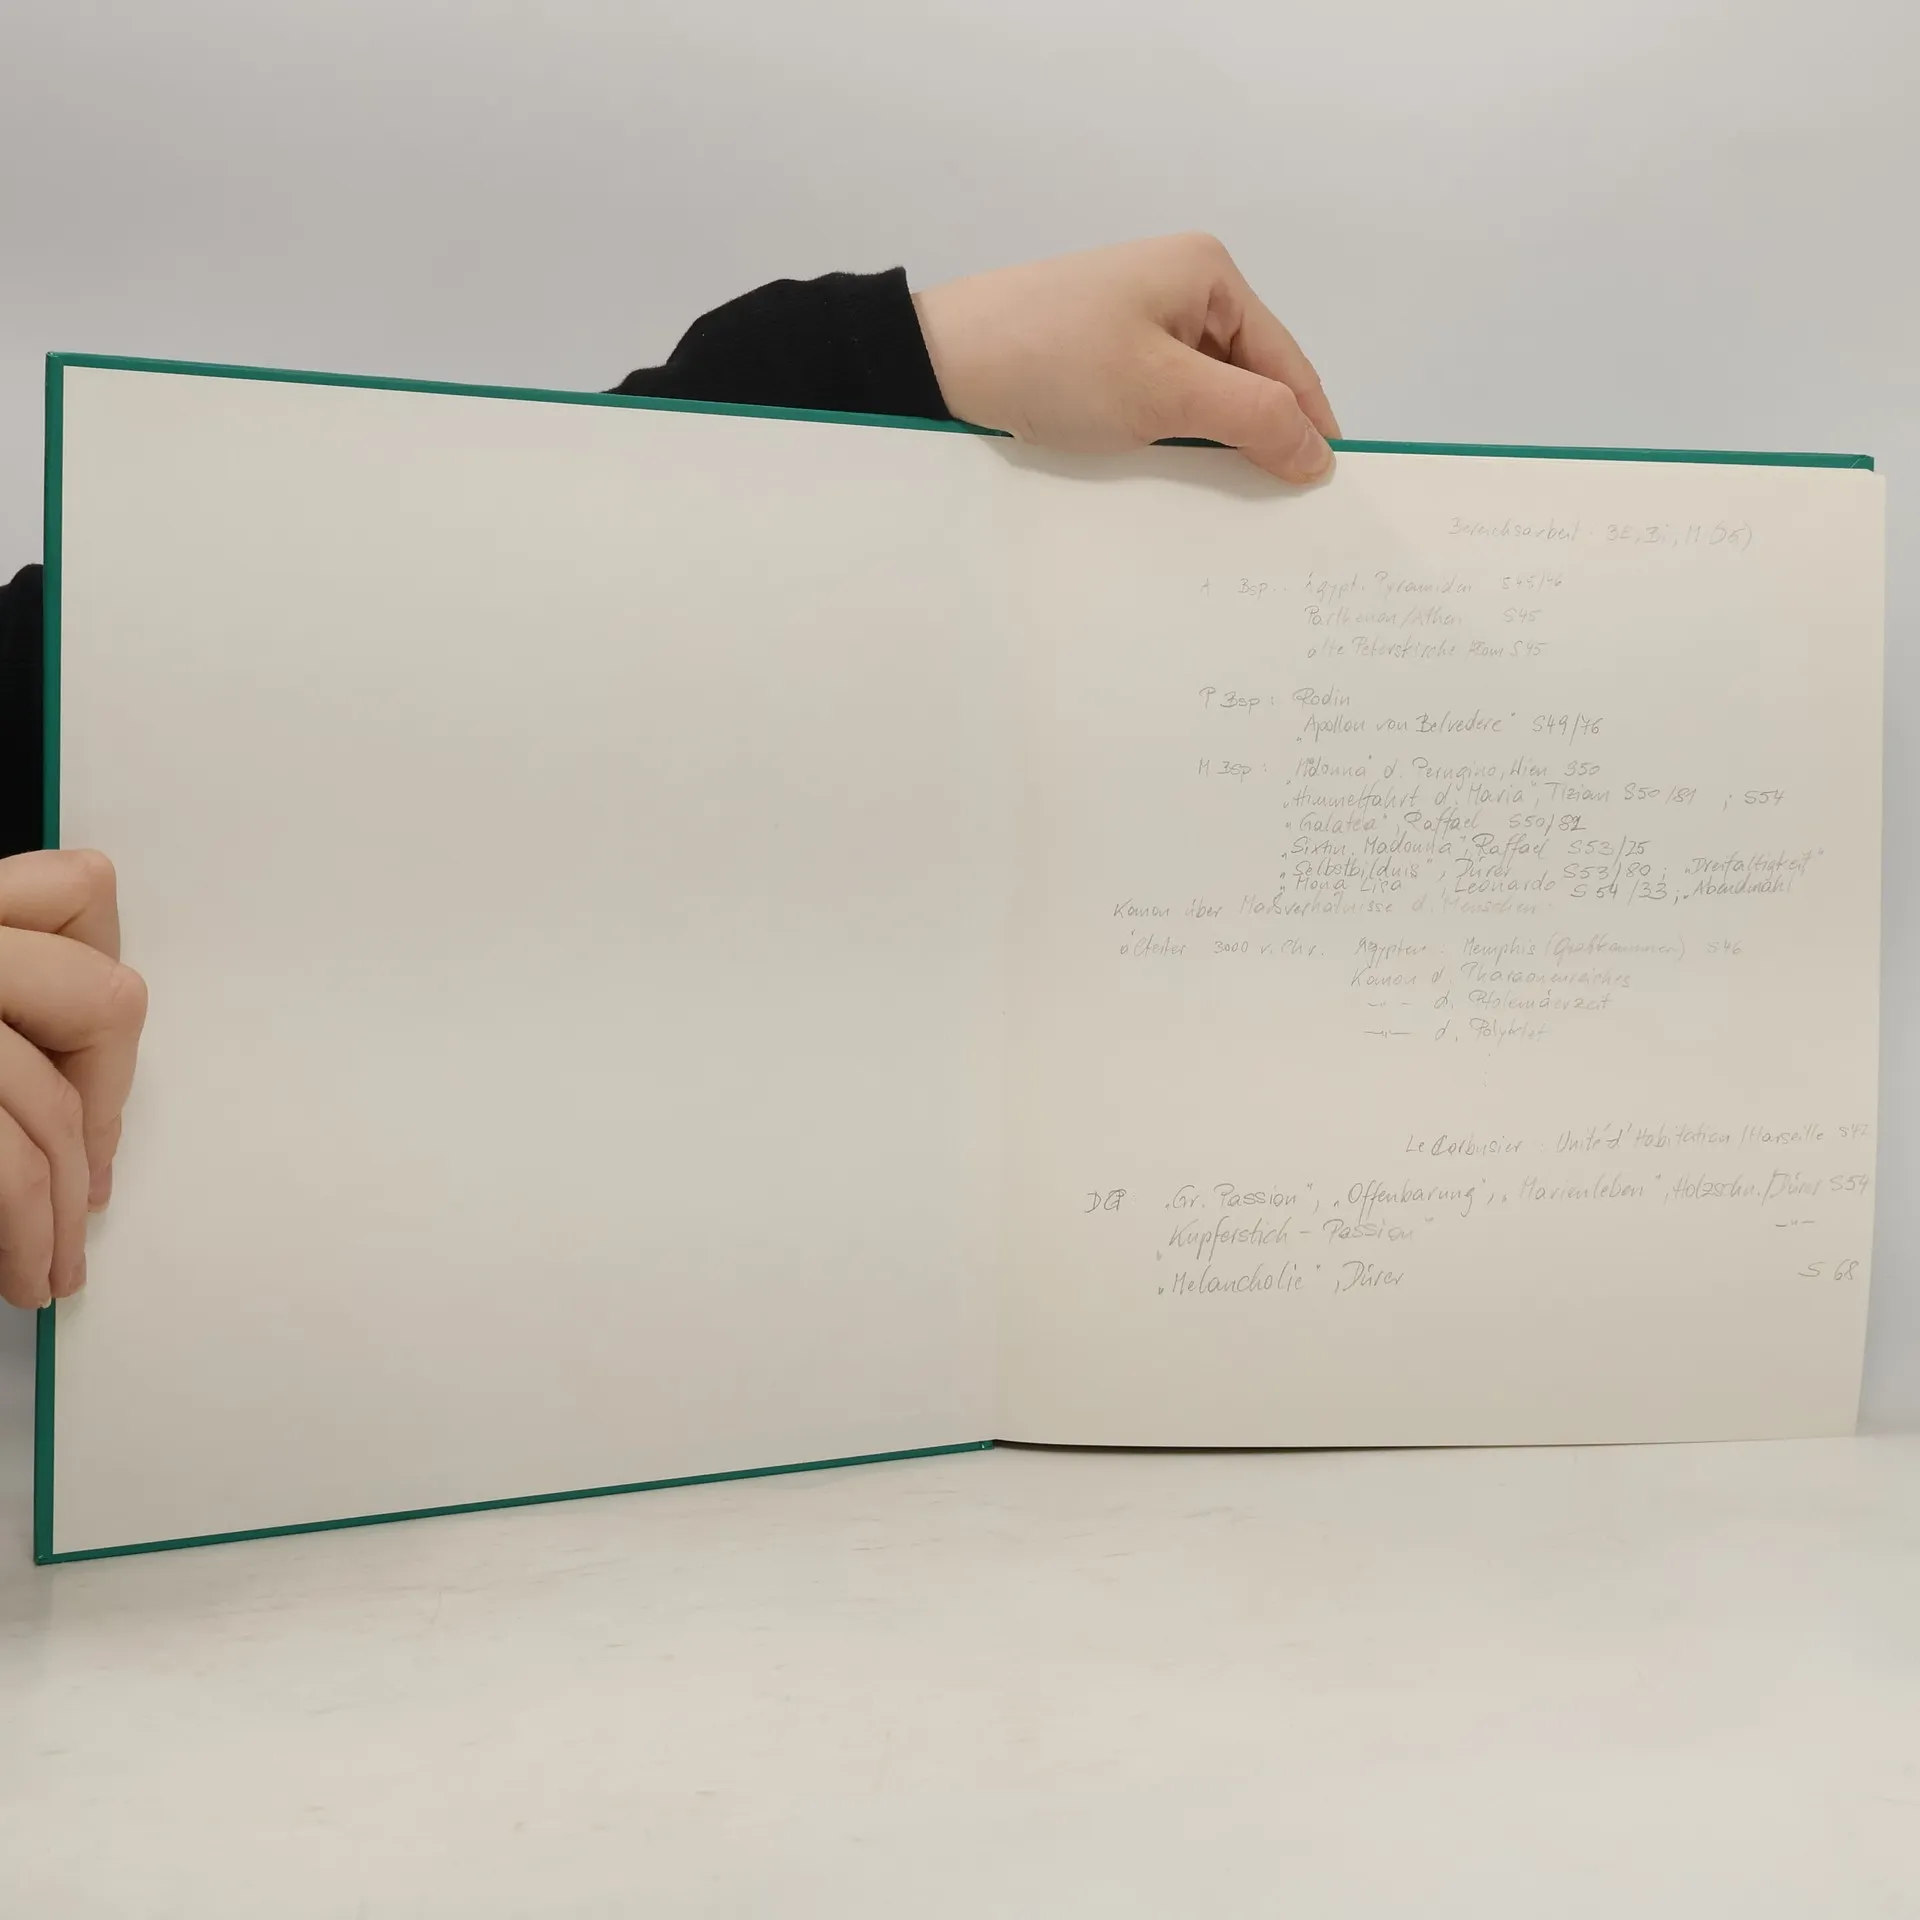 Bereichsarbeit · BE, Bi, M
A Bsp.: Ägypt. Pyramiden S45/46
Parthenon/Athen S45
alte Peterskirche Rom S45
P Bsp: Rodin
„Apollon von Belvedere" S49/76
M Bsp: „Madonna" d. Perugino, Wien S50
„Himmelfahrt d. Maria", Tizian S50/81 ; S54
„Galatea", Raffael S50/82
„Sixtin. Madonna", Raffael S53/25
„Selbstbildnis", Dürer S53/80; „Dreifaltigkeit"
„Mona Lisa", Leonardo S54/33; „Abendmahl
Kanon über Maßverhältnisse d. Menschen:
ältester 3000 v. Chr. Ägypten - Memphis (Grabkammern) S46
Kanon d. Pharaonenreiches
–"– d. Ptolemäerzeit
–"– d. Polyklet
Le Corbusier: Unité d'Habitation/Marseille S42
DG „Gr. Passion", „Offenbarung", „Marienleben", Holzschn./Dürer S54
„Kupferstich – Passion" –"–
„Melancholie", Dürer S 68